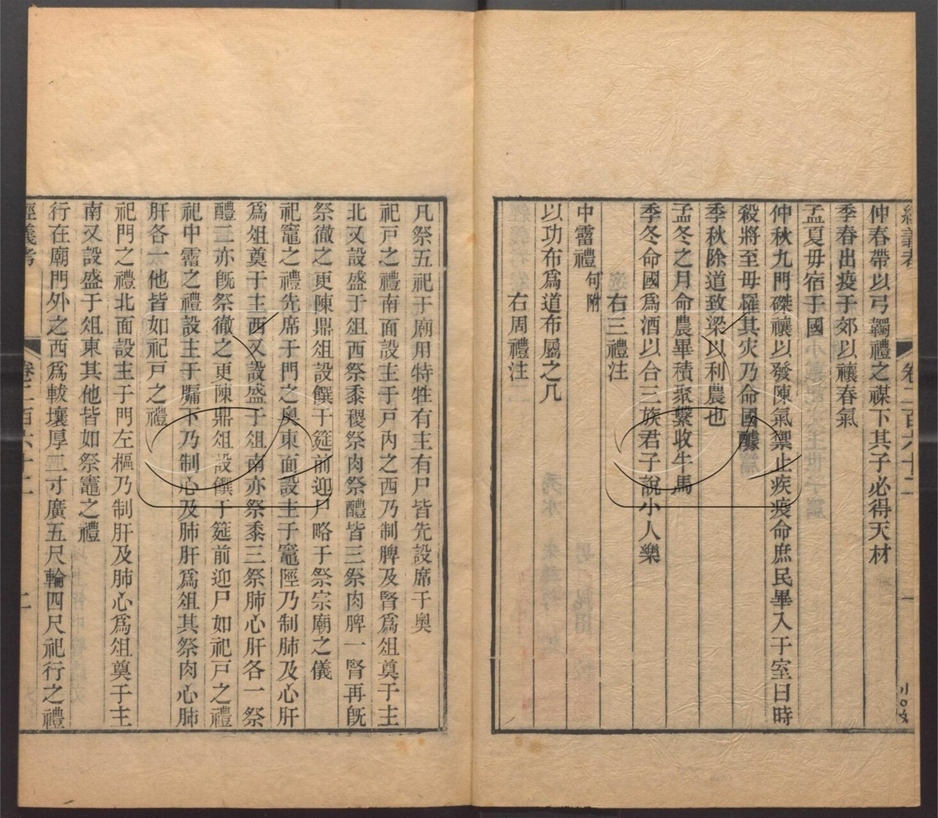 經義考
卷二百六十二
一
仲春帶以弓韣禮之禖下其子必得天材
季春出疫于郊以禳春氣
孟夏毋宿于國
仲秋九門磔禳以發陳氣禦止疾疫命庶民畢入于室曰時
殺將至毋罹其灾乃命國醵
季秋除道致梁以利農也
孟冬之月命農畢積聚繫收牛馬
季冬命國爲酒以合三族君子說小人樂
右三禮注
中霤禮句附
以功布爲道布屬之几
右周禮注
凡祭五祀于廟用特牲有主有尸皆先設席于奥
祀戶之禮南面設主于戶內之西乃制脾及腎爲俎奠于主
北又設盛于俎西祭黍稷祭肉祭醴皆三祭肉脾一腎再旣
祭徹之更陳鼎俎設饌于筵前迎尸略于祭宗廟之儀
祀竈之禮先席于門之奥東面設主于竈陘乃制肺及心肝
爲俎奠于主西又設盛于俎南亦祭黍三祭肺心肝各一祭
醴三亦旣祭徹之更陳鼎俎設饌于筵前迎尸如祀戶之禮
祀中霤之禮設主于牖下乃制心及肺肝爲俎其祭肉心肺
肝各一他皆如祀戶之禮
祀門之禮北面設主于門左樞乃制肝及肺心爲俎奠于主
南又設盛于俎東其他皆如祭竈之禮
行在廟門外之西爲軷壤厚二寸廣五尺輪四尺祀行之禮
經義考
卷二百六十二
二